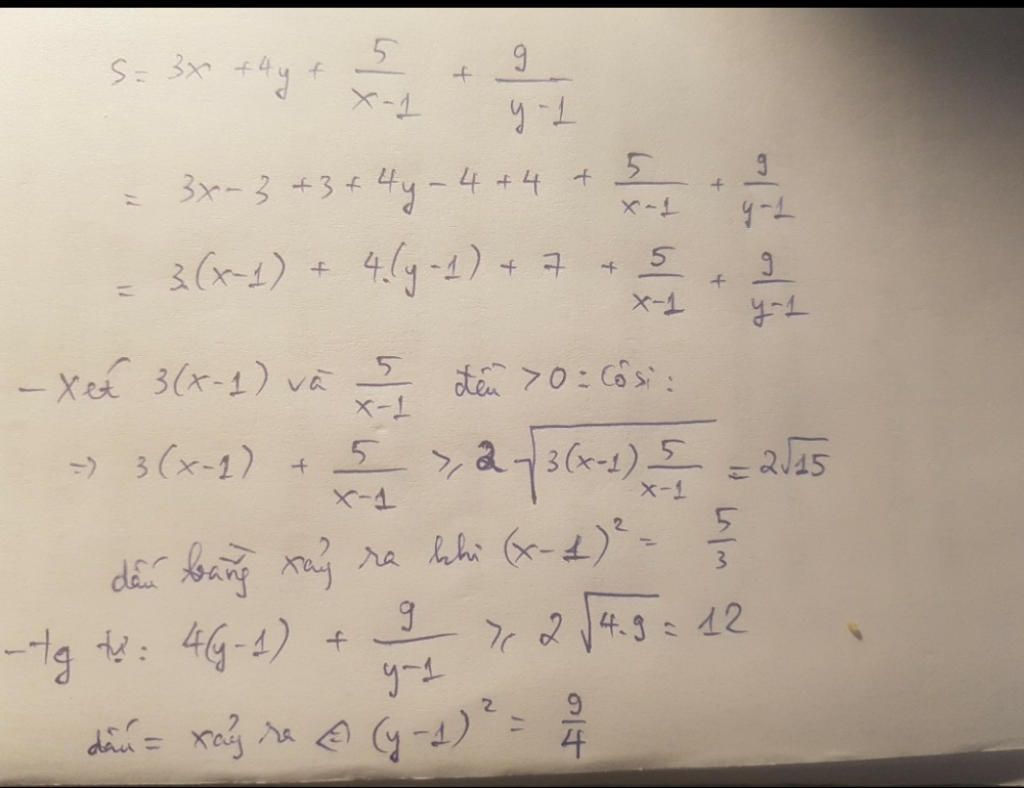 S = 3x + 4y + \frac{5}{x-1} + \frac{9}{y-1}
= 3x - 3 + 3 + 4y - 4 + 4 + \frac{5}{x-1} + \frac{9}{y-1}
= 3.(x-1) + 4.(y-1) + 7 + \frac{5}{x-1} + \frac{9}{y-1}
- Xét 3(x-1) và \frac{5}{x-1} đều > 0 = Côsi :
=> 3(x-1) + \frac{5}{x-1} ≥ 2\sqrt{3(x-1)\frac{5}{x-1}} = 2\sqrt{15}
dấu bằng xảy ra khi (x-1)^2 = \frac{5}{3}
- tg tự : 4(y-1) + \frac{9}{y-1} ≥ 2\sqrt{4.9} = 12
dấu = xảy ra <=> (y-1)^2 = \frac{9}{4}